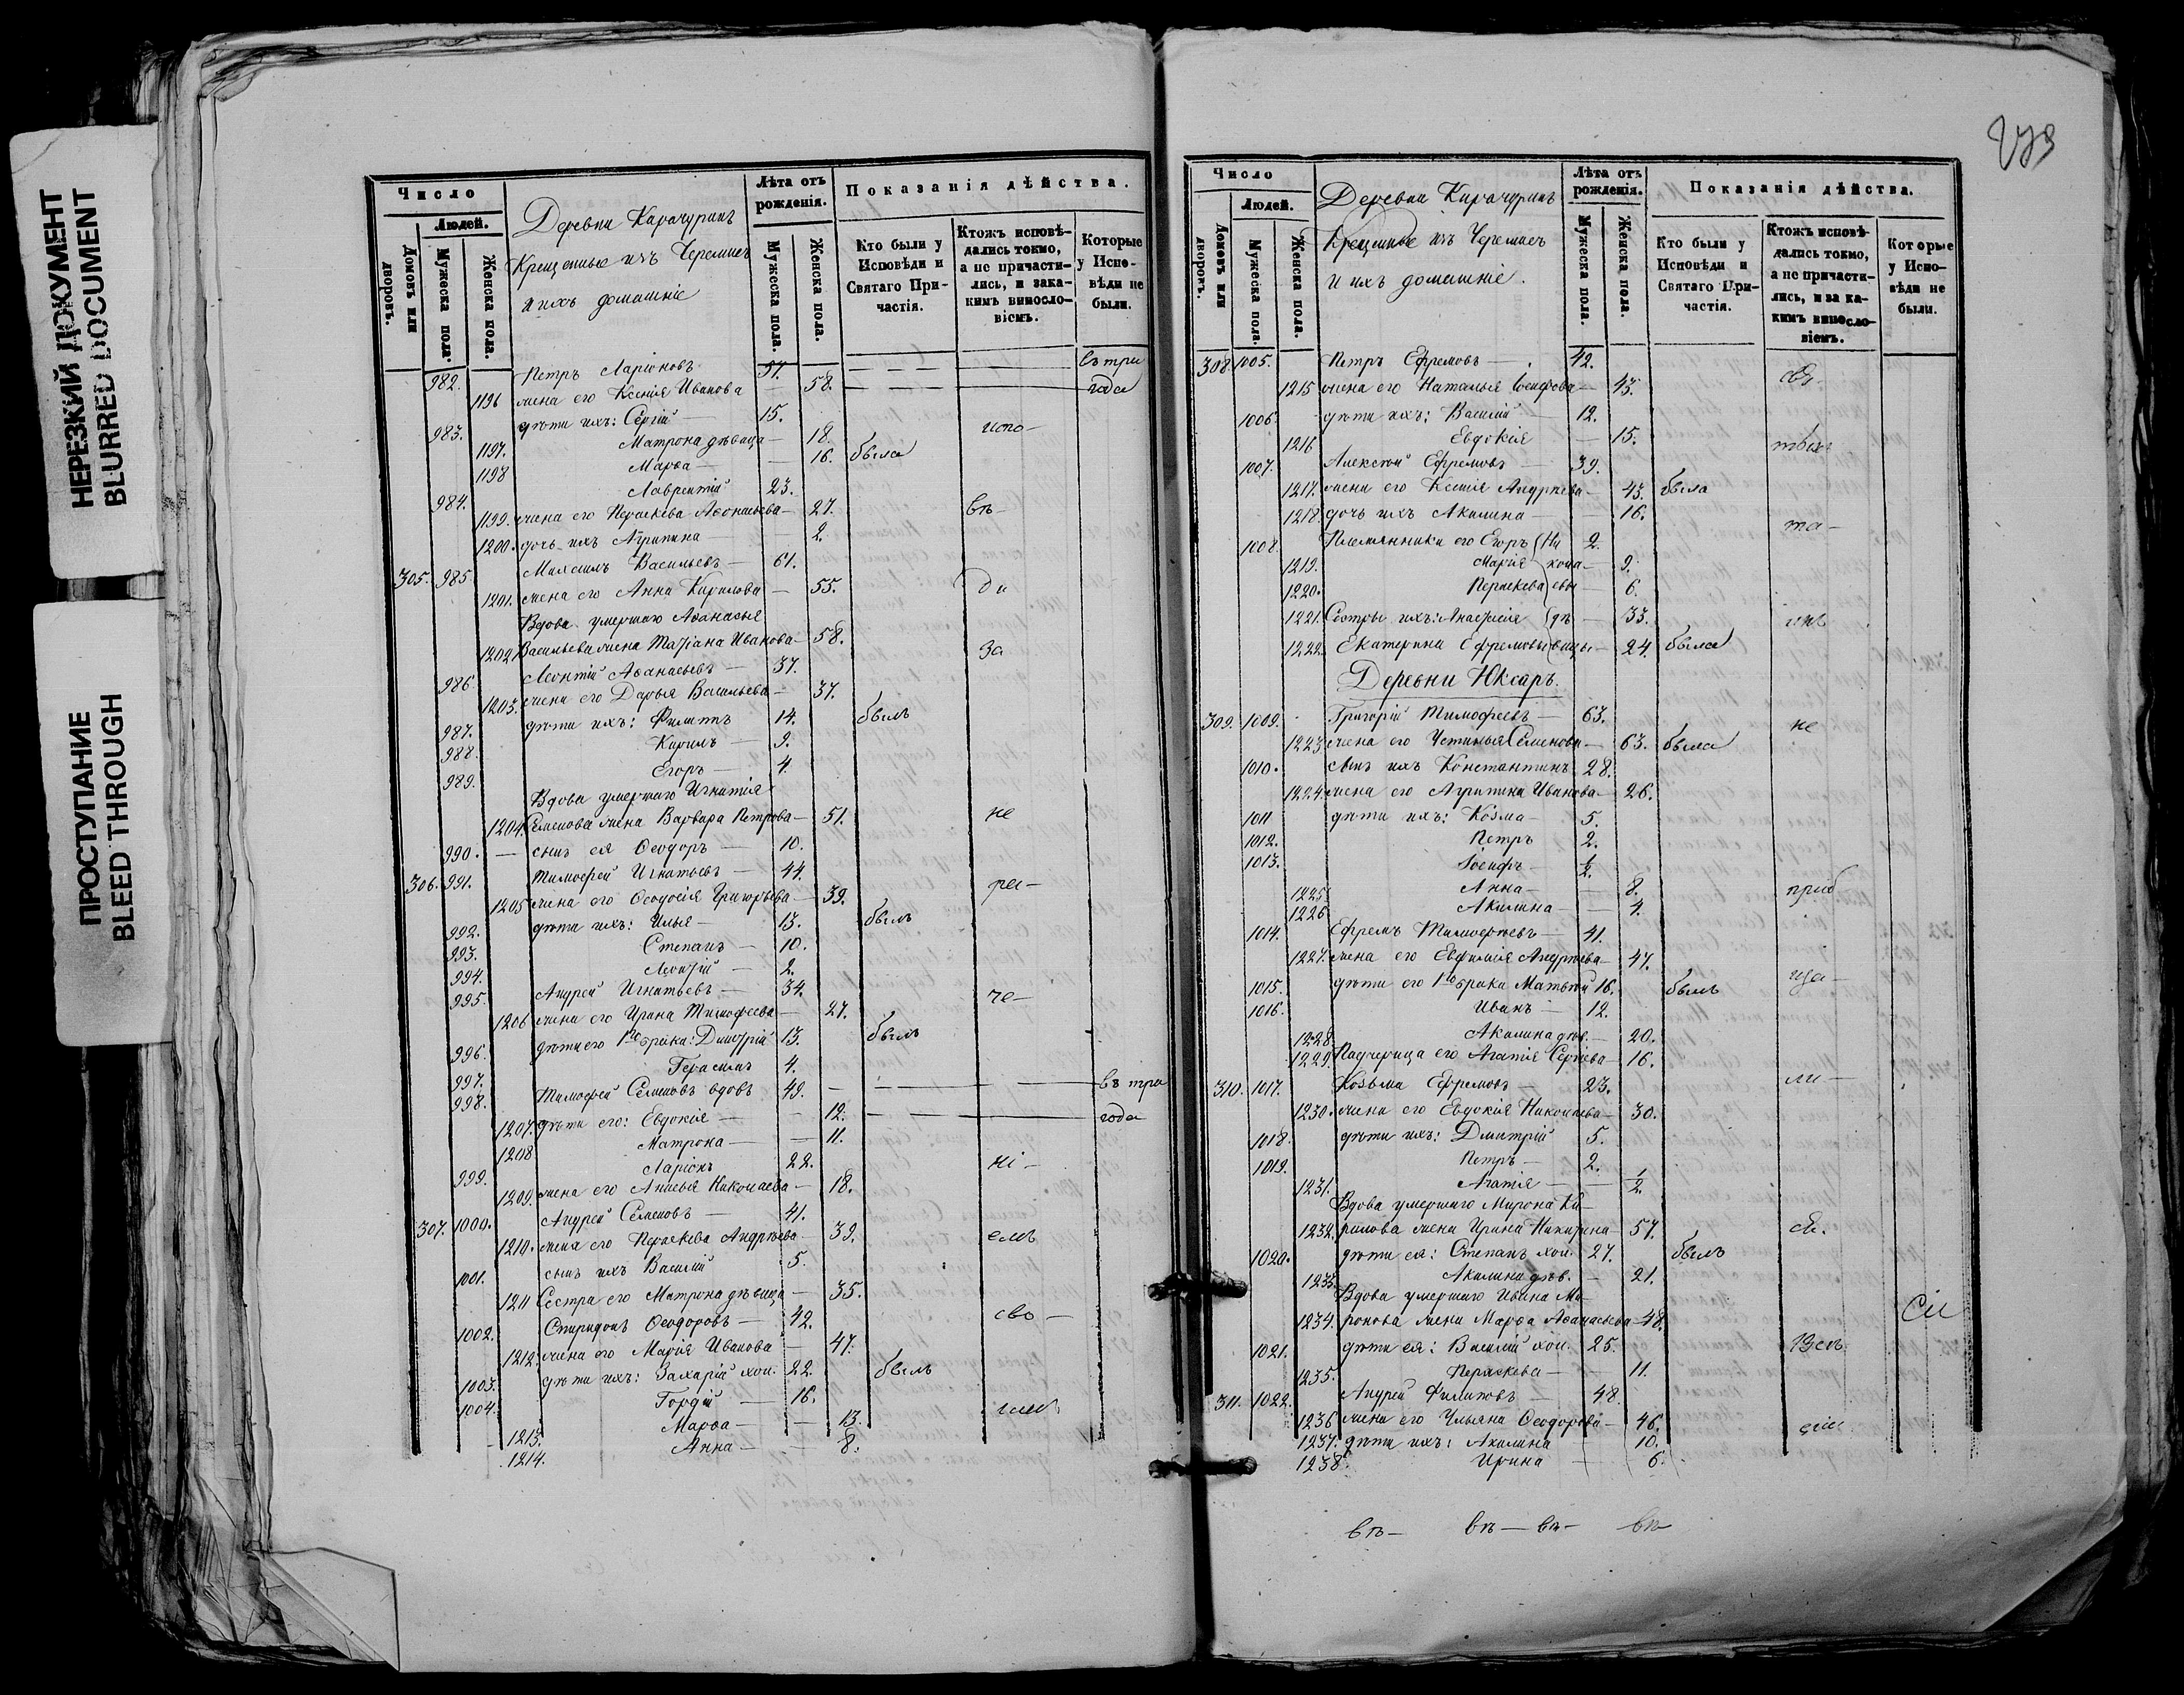 НЕРЕЗКИЙ ДОКУМЕНТ
BLURRED DOCUMENT
ПРОСТУПАНИЕ
BLEED THROUGH
Число
Людей.
Домовъ или дворовъ.
Мужеска пола.
Женска пола.
Деревни Карачуринъ
Крещенные изъ Черемисъ
и ихъ домашніе
Лѣта отъ рожденія.
Мужеска пола.
Женска пола.
Показанія дѣйства.
Кто были у Исповѣди и Святаго Причастія.
Ктожъ исповѣдались токмо, а не причастились, и за какимъ винословіемъ.
Которые у Исповѣди не были.
982. Петръ Ларіоновъ — — — въ три
1196 жена его Ксенія Иванова 58. — — — года
983. дѣти ихъ: Сергій — 15. испо-
1197. Матрона дѣвица — 18.
1198 Марѳа — 16. была
984. Лаврентій 23.
1199. жена его Параскева Аѳонасьева — 27. вѣ-
1200. дочь ихъ Агрипина — 2.
305. 985. Михаилъ Васильевъ — 61.
1201. жена его Анна Кирилова — 55. ди
Вдова умершаго Аѳанасія
1202 Васильева жена Татіана Иванова — 58. за
986. Леонтій Аѳанасьевъ — 37.
1203. жена его Дарья Васильева — 37.
987. дѣти ихъ: Филиппъ 14. былъ
988. Кирилъ — 9.
989. Егоръ — 4.
Вдова умершаго Игнатія
1204. Семенова жена Варвара Петрова — 51. не
990. — сынъ ея Ѳеодоръ — 10.
306. 991. Тимоѳей Игнатьевъ — 44. ра-
1205 жена его Ѳеодосія Григорьева — 39.
992. дѣти ихъ: Илья — 13. былъ
993. Степанъ — 10.
994. Леонтій — 2.
995. Андрей Игнатьевъ — 34. че-
1206 жена его Ирина Тимофеева — 27.
996. дѣти его 1го брака: Димитрій 13. былъ
997. Герасимъ 4.
998. Тимофей Семеновъ вдовъ 49. — — — въ три
1207. дѣти его: Евдокія — 12. — — — года
1208 Матрона — 11.
999. Ларіонъ 22. ні-
1209. жена его Анисья Николаева — 18.
307. 1000. Андрей Семеновъ — 41.
1210. жена его Параскева Андрѣева 39. емъ
1001. сынъ ихъ Василій 5.
1211 Сестра его Матрона дѣвица — 35.
1002. Спиридонъ Ѳеодоровъ — 42. сво-
1212. жена его Марія Иванова — 47.
1003. дѣти ихъ: Захарій хол. 22. былъ
1004. Гордій — 16.
1213. Марѳа — 13.
1214. Анна — 8.
273
Число
Людей.
Домовъ или дворовъ.
Мужеска пола.
Женска пола.
Деревни Карачуринъ
Крещеные изъ Черемисъ
и ихъ домашніе.
Лѣта отъ рожденія.
Мужеска пола.
Женска пола.
Показанія дѣйства.
Кто были у Исповѣди и Святаго Причастія.
Ктожъ исповѣдались токмо, а не причастились, и за какимъ винословіемъ.
Которые у Исповѣди не были.
308. 1005. Петръ Ефремовъ — 42.
1215 жена его Наталья Іосифова — 43.
1006. дѣти ихъ: Василій — 12.
1216 Евдокія — 15.
1007. Алексѣй Ефремовъ — 39.
1217. жена его Ксенія Андрѣева — 43. была
1218. дочь ихъ Акилина — 16. та-
1008. Племянники его Егоръ (Ни 2.
1219. Марія кола — 9.
1220. Параскева евы — 6.
1221. Сестры ихъ: Анастасія (дѣ — 33.
1222. Екатерина Ефремовы вицы — 24. была
Деревни Юксаръ.
309. 1009. Григорій Тимофеевъ — 63. не
1223 жена его Устинья Семенова — 63. была
1010. сынъ ихъ Константинъ 28.
1224 жена его Агрипина Иванова — 26.
1011 дѣти ихъ: Козма — 5.
1012. Петръ 2.
1013. Іосифъ — ½.
1225. Анна — 8. прі
1226 Акилина — 4.
1014. Ефремъ Тимоѳеевъ — 41.
1227. жена его Евфимія Андрѣева — 47.
1015. дѣти его 1го брака Матвѣй 16. былъ ща-
1016. Иванъ — 12.
1228. Акилина дѣв. — 20.
1229. Падчерица его Агапія Сергѣева — 16.
310. 1017. Козьма Ефремовъ — 23. ли —
1230. жена его Евдокія Николаева — 30.
1018. дѣти ихъ: Дмитрій 5.
1019. Петръ — 2.
1231. Агапія — ½.
Вдова умершаго Мирона Ки-
1232. рилова жена Ирина Никитина — 57. ся.
1020. дѣти ея: Степанъ хол. 27. былъ
1233. Акилина дѣв. — 21.
Вдова умершаго Ивана Ми-
1234. ронова жена Марѳа Аѳанасьева — 48.
1021. дѣти ея: Василій хол. 25.
1235. Параскева — 11.
311. 1022. Андрей Филиповъ — 48.
1236 жена его Ульяна Ѳеодорова — 46.
1237. дѣти ихъ: Акилина — 10.
1238. Ирина — 6.
вѣ- вѣ- вѣ- вѣ